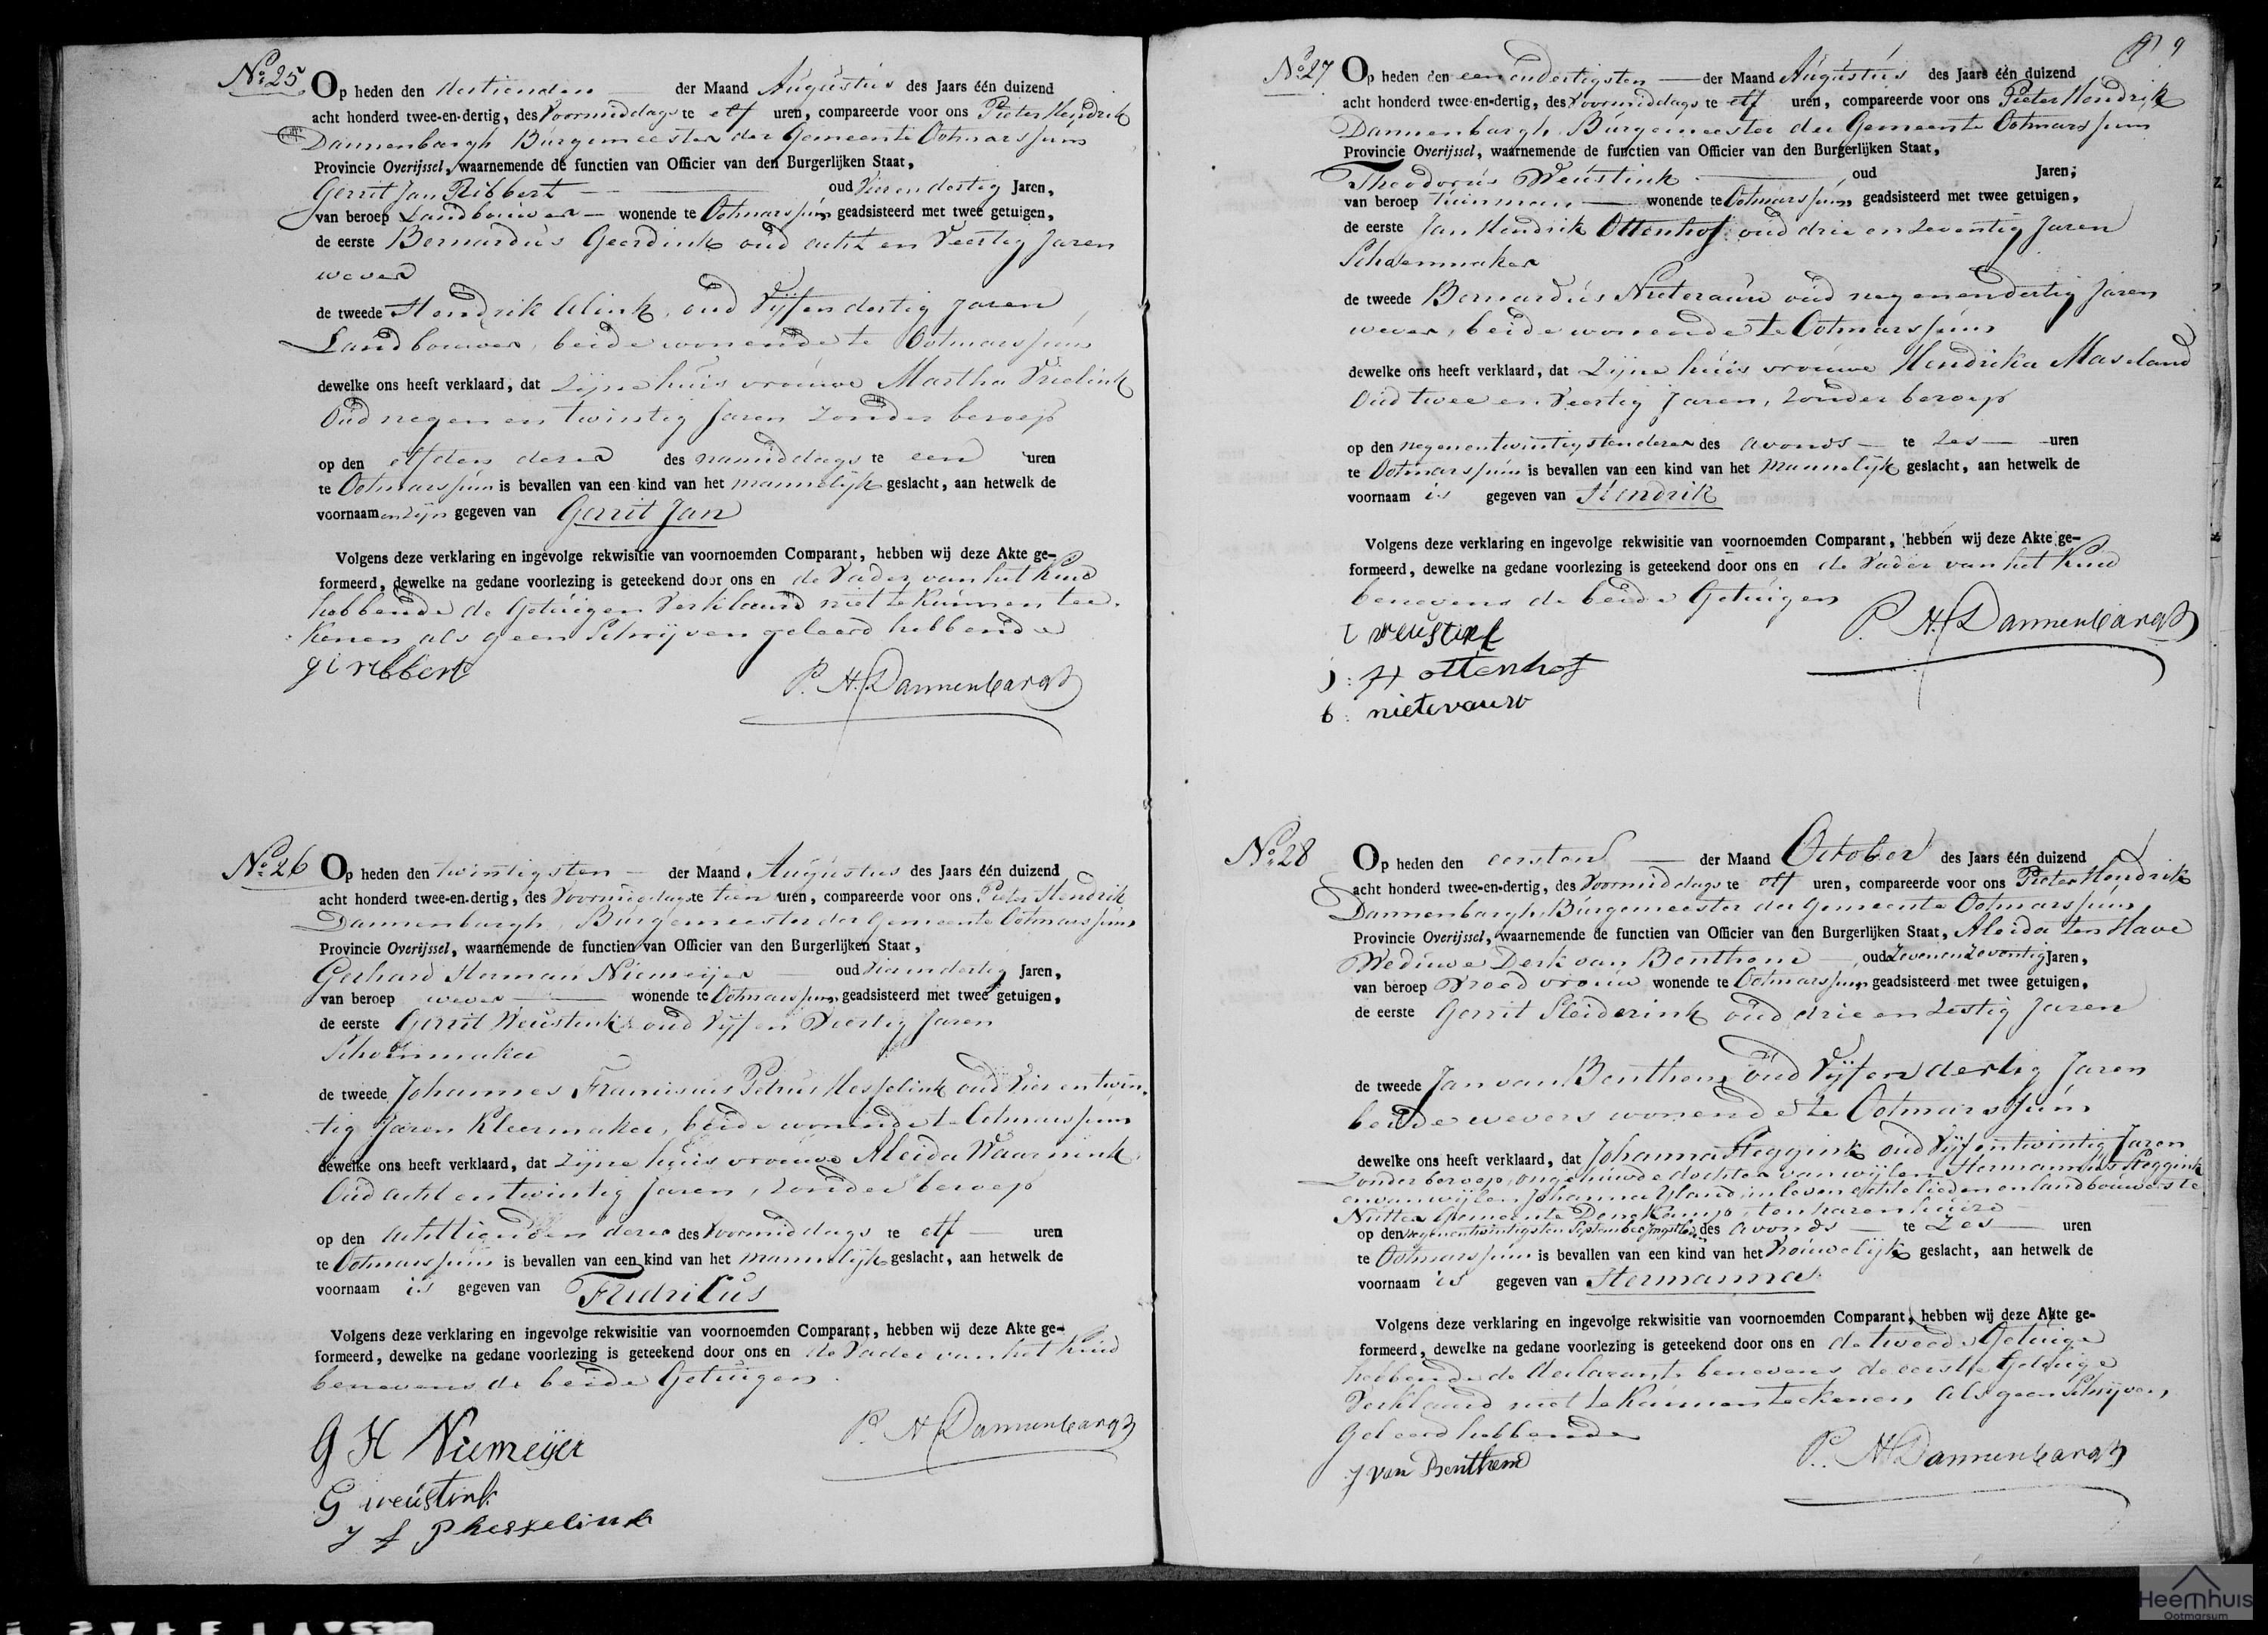 No. 25 Op heden den dertienden der Maand Augustus des Jaars één duizend
acht honderd twee-en-dertig, des Voormiddags te elf uren, compareerde voor ons Pieter Hendrik
Dannenbargh Burgemeester der Gemeente Ootmarssum
Provincie Overijssel, waarnemende de functien van Officier van den Burgerlijken Staat,
Gerrit Jan Ribbert oud Vier en dertig Jaren,
van beroep Landbouwer wonende te Ootmarssum geadsisteerd met twee getuigen,
de eerste Bernardus Geerdink oud acht en Veertig Jaren
wever
de tweede Hendrik Alink, oud Vijf en dertig Jaren,
Landbouwer, beide wonende te Ootmarssum
dewelke ons heeft verklaard, dat Zijne huis vrouwe Martha Vrielink
Oud negen en twintig Jaren Zonder beroep
op den elfden dezer des namiddags te een uren
te Ootmarssum is bevallen van een kind van het mannelijk geslacht, aan hetwelk de
voornaamen zijn gegeven van Gerrit Jan
Volgens deze verklaring en ingevolge rekwisitie van voornoemden Comparant, hebben wij deze Akte ge-
formeerd, dewelke na gedane voorlezing is geteekend door ons en de Vader van het Kind
hebbende de Getuigen Verklaard niet te Kunnen tee-
kenen als geen Schrijven geleerd hebbende
g i ribbert
P. H. Dannenbargh
No. 26 Op heden den twintigsten der Maand Augustus des Jaars één duizend
acht honderd twee-en-dertig, des Voormiddags te tien uren, compareerde voor ons Pieter Hendrik
Dannenbargh, Burgemeester der Gemeente Ootmarssum
Provincie Overijssel, waarnemende de functien van Officier van den Burgerlijken Staat,
Gerhard Herman Niemeijer oud Vier en dertig Jaren,
van beroep wever wonende te Ootmarssum geadsisteerd met twee getuigen,
de eerste Gerrit Weustink oud Vijf en Veertig Jaren
Schoenmaker
de tweede Johannes Franciscus Petrus Hesselink oud Vier en twin-
tig Jaren Kleermaker, beide wonende te Ootmarssum
dewelke ons heeft verklaard, dat Zijne huis vrouwe Aleida Waarnink
Oud acht en twintig Jaren, Zonder beroep
op den achttienden dezer des Voormiddags te elf uren
te Ootmarssum is bevallen van een kind van het mannelijk geslacht, aan hetwelk de
voornaam is gegeven van Fredrikus
Volgens deze verklaring en ingevolge rekwisitie van voornoemden Comparant, hebben wij deze Akte ge-
formeerd, dewelke na gedane voorlezing is geteekend door ons en de Vader van het Kind
benevens de beide Getuigen.
G H Niemeijer
P. H Dannenbargh
G weustink
J f P hesselink
9
No. 27 Op heden den een en dertigsten der Maand Augustus des Jaars één duizend
acht honderd twee-en-dertig, des Voormiddags te elf uren, compareerde voor ons Pieter Hendrik
Dannenbargh Burgemeester der Gemeente Ootmarssum
Provincie Overijssel, waarnemende de functien van Officier van den Burgerlijken Staat,
Theodorus Weustink oud Jaren,
van beroep tuinman wonende te Ootmarssum, geadsisteerd met twee getuigen,
de eerste Jan Hendrik Ottenhof oud drie en Zeventig Jaren
Schoenmaker
de tweede Bernardus Nieterauw oud negen en dertig Jaren
wever, beide wonende te Ootmarssum
dewelke ons heeft verklaard, dat Zijne huis vrouwe Hendrika Maseland
Oud twee en Veertig Jaren, Zonder beroep
op den negenentwintigsten dezer des avonds te Zes uren
te Ootmarssum is bevallen van een kind van het mannelijk geslacht, aan hetwelk de
voornaam is gegeven van Hendrik
Volgens deze verklaring en ingevolge rekwisitie van voornoemden Comparant, hebben wij deze Akte ge-
formeerd, dewelke na gedane voorlezing is geteekend door ons en de Vader van het Kind
benevens de beide Getuigen
T weustink
P. H. Dannenbargh
J: H ottenhof
b: nieterauw
No. 28 Op heden den eersten der Maand October des Jaars één duizend
acht honderd twee-en-dertig, des Voormiddags te elf uren, compareerde voor ons Pieter Hendrik
Dannenbargh Burgemeester der Gemeente Ootmarssum
Provincie Overijssel, waarnemende de functien van Officier van den Burgerlijken Staat, Aleida ten Have
Weduwe Derk van Benthem oud Zeven en Zeventig Jaren,
van beroep Vroed vrouw wonende te Ootmarssum geadsisteerd met twee getuigen,
de eerste Gerrit Sleiderink oud drie en Zestig Jaren
de tweede Jan van Benthem oud Vijf en dertig Jaren
beide wevers wonende te Ootmarssum
dewelke ons heeft verklaard, dat Johanna Steggink oud Vijf en twintig Jaren
Zonder beroep, ongehuwde dochter van wijlen Hermannus Steggink
en van wijlen Johanna Yland in leven echtelieden en landbouwers te
Nutter Gemeente Denekamp, ten haren huize
op den negenentwintigsten September jongstleden des avonds te Zes uren
te Ootmarssum is bevallen van een kind van het Vrouwelijk geslacht, aan hetwelk de
voornaam is gegeven van Hermanna
Volgens deze verklaring en ingevolge rekwisitie van voornoemden Comparant, hebben wij deze Akte ge-
formeerd, dewelke na gedane voorlezing is geteekend door ons en de tweede Getuige
hebbende de declarante benevens de eerste Getuige
Verklaard niet te Kunnen teekenen, als geen Schrijven
Geleerd hebbende
J van Benthem
P. H Dannenbargh
Heemhuis
Ootmarsum